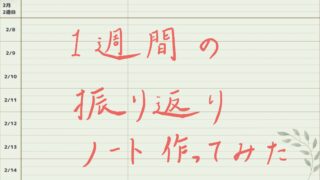 2月
2週目
2/8
2/9
2/10
2/11
2/12
2/13
2/14
1週間の
振り返り
ノート作ってみた